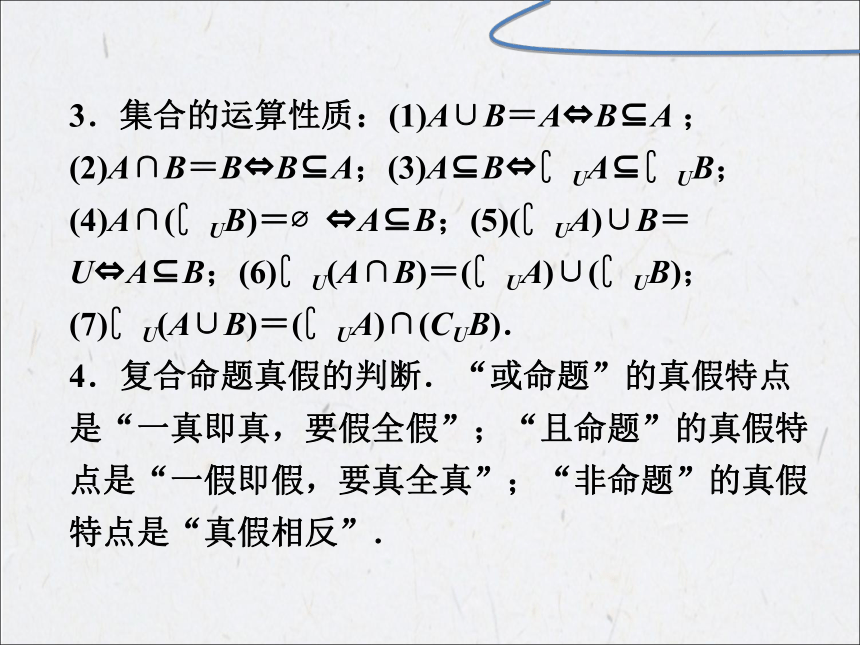 3．集合的运算性质：(1)A∪B＝A⇔B⊆A；
(2)A∩B＝B⇔B⊆A；(3)A⊆B⇔∁UA⊆∁UB；
(4)A∩(∁UB)＝∅ ⇔A⊆B；(5)(∁UA)∪B＝
U⇔A⊆B；(6)∁U(A∩B)＝(∁UA)∪(∁UB)；
(7)∁U(A∪B)＝(∁UA)∩(CUB)．
4．复合命题真假的判断．“或命题”的真假特点
是“一真即真，要假全假”；“且命题”的真假特
点是“一假即假，要真全真”；“非命题”的真假
特点是“真假相反”．